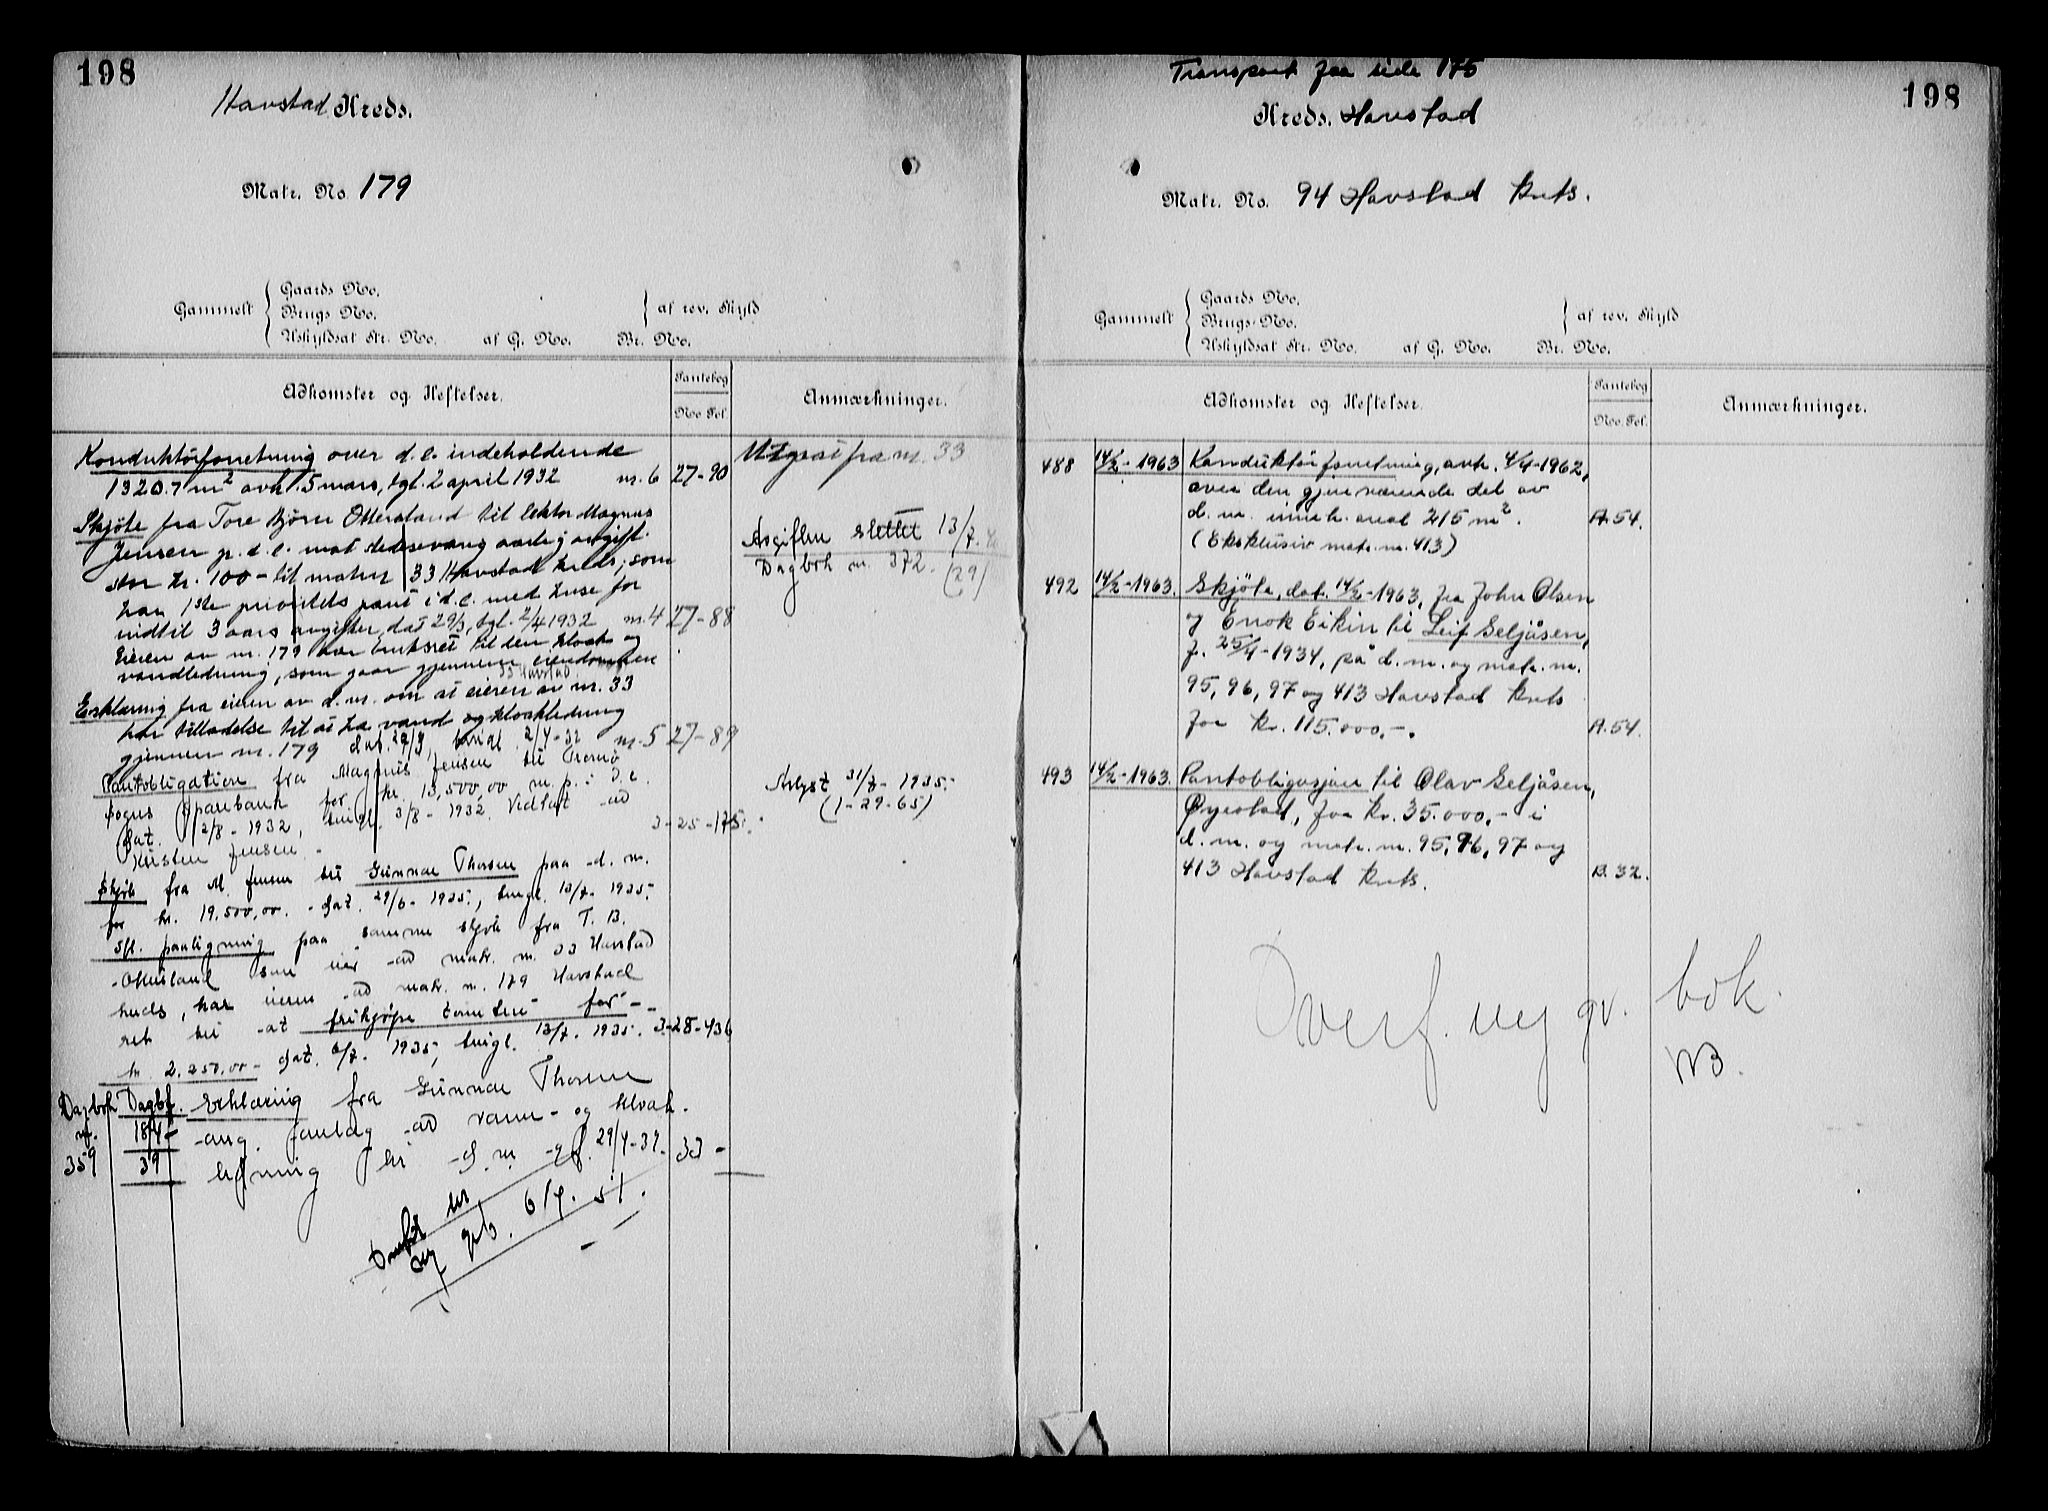 198
Havstad Kreds.
Matr. No. 179
Gammelt
Gaards No.
Brugs No.
Uskyldsat Str. No. af G. No. Br. No.
af rev. Skyld
Adkomster og Heftelser.
Pantebog
No. Fol.
Anmærkninger.
Konduktörforretning over d.e. indeholdende
1320.7 m² avh. 5 mars, tgl. 2 april 1932 nr. 6 27-90
Utgaat fra nr. 33
Skjöte fra Tore Björn Ottersland til lektor Magnus
Jensen p. d. e. mot aarlig avgift
stor kr. 100- til matrnr 33 Havstad kreds, som
har 1ste prioritets pant i d.e. med huse for
indtil 3 aars avgifter, dat 29/3, tgl. 2/4 1932 nr. 4 27-88
Avgiften slettet 13/7.
Dagbok nr. 372. (29)
Eieren av nr. 179 har bruksret til den kloak og
vandledning, som gaar gjennem eiendommen
33 Havstad
Erklæring fra eieren av d. nr. om at eieren av nr. 33
har tilladelse til at ha vand og kloakledning
gjennem nr. 179 dat. 29/3, tingl. 2/4-32 nr. 5 27-89
Pantobligation fra Magnus Jensen til Tromö
sogns sparebank for kr. 13,500,00 m. p. i d. e.
dat. 2/8 - 1932, tingl. 3/8 - 1932. Vidtat ad
Kirsten Jensen. 3-25-175.
Avlyst 31/7 - 1935.
(1-29-65)
Skjöte fra M. Jensen til Gunnar Thorsen paa d. nr.
for kr. 19.500,00. dat. 29/6 - 1935, tingl. 13/7- 1935.
Ifl. paategning paa samme skjöte fra T. B.
Ottersland som eier ad matr. nr. 33 Havstad
kreds, har eieren ad matr. nr. 179 Havstad
ret til at frikjöpe tomten for
kr. 2.250,00 dat. 6/7. 1935, tingl. 13/7. 1935. 3-28-436
Dagbok nr. 359
Dagbf. 18/4 - 39
Erklæring fra Gunnar Thorsen
ang. anlæg ad vann- og kloak.
ledning til d. nr. 29/4-39. 33 -
Overfört til
ny gb. 6/4. 51.
Transport fra side 175
198
Kreds. Havstad
Matr. No. 94 Havstad krets.
Gammelt
Gaards No.
Brugs No.
Uskyldsat Str. No. af G. No. Br. No.
af rev. Skyld
Adkomster og Heftelser.
Pantebog
No. Fol.
Anmærkninger.
488 14/2-1963 Konduktörforretning, avh. 4/4-1962,
over den gjenværende del av
d. nr. inneh. areal 215 m². A.54.
(Eksklusiv matr. nr. 413)
492 14/2-1963. Skjöte, dat. 14/2-1963, fra John Olsen
og Enok Eikin til Leif Seljåsen,
f. 25/4-1934, på d. nr. og matr. nr.
95, 96, 97 og 413 Havstad krets
for kr. 115.000,-. A.54.
493 14/2-1963. Pantobligasjon til Olav Seljåsen,
Öyestad, for kr. 35.000,- i
d. nr. og matr. nr. 95, 96, 97 og
413 Havstad krets. B.32.
Overf. ny gr. bok.
NB.